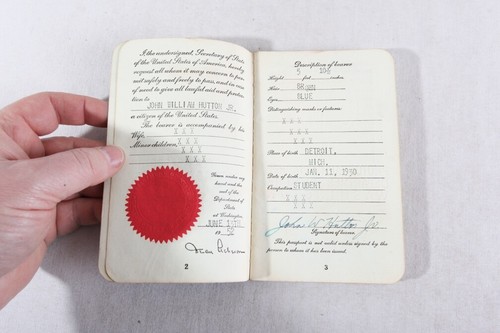 I, the undersigned, Secretary of State
of the United States of America, hereby
request all whom it may concern to per-
mit safely and freely to pass, and in case
of need to give all lawful aid and protec-
tion to
JOHN WILLIAM HUTTON JR.
a citizen of the United States.
The bearer is accompanied by his
Wife, XXX
Minor children, XXX
XXX
XXX
Given under my
hand and the
seal of the
Department of
State
at Washington,
JUNE
19 52
Dean Acheson
2
Description of bearer
Height 5 feet inches
Hair BROWN
Eyes BLUE
Distinguishing marks or features:
XXX
XXX
XXX
Place of birth DETROIT,
MICH.
Date of birth JAN. 11, 1930
Occupation STUDENT
XXX
XXX
John W Hutton Jr.
Signature of bearer
This passport is not valid unless signed by the
person to whom it has been issued.
3